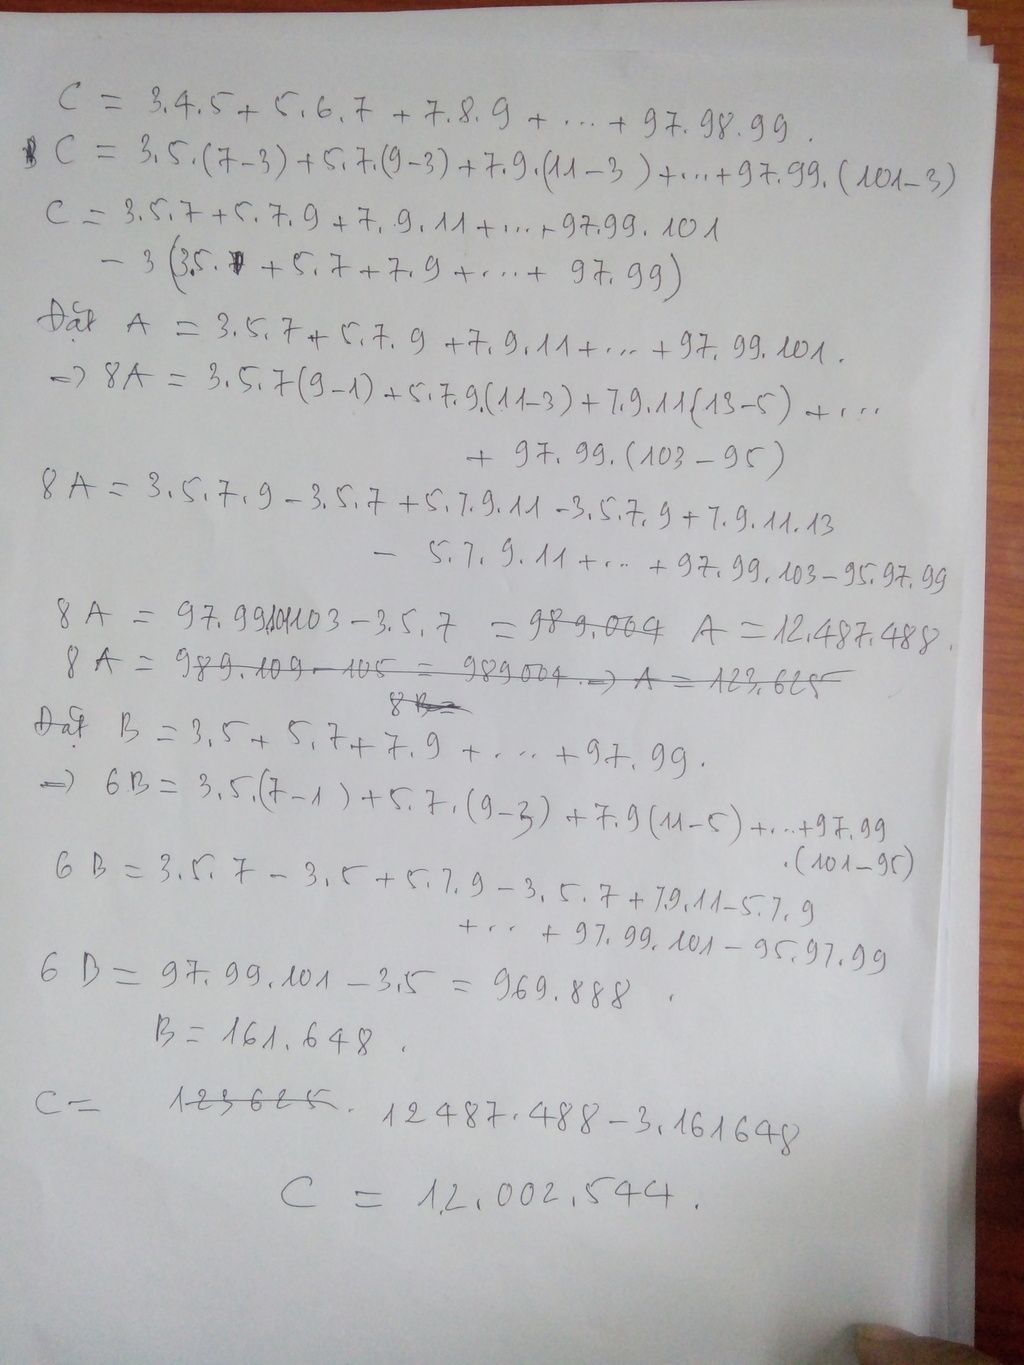 C = 3.4.5 + 5.6.7 + 7.8.9 + ... + 97.98.99.
C = 3.5.(7-3) + 5.7.(9-3) + 7.9.(11-3) + ... + 97.99.(101-3)
C = 3.5.7 + 5.7.9 + 7.9.11 + ... + 97.99.101
- 3 (3.5. + 5.7 + 7.9 + ... + 97.99)
Đặt A = 3.5.7 + 5.7.9 + 7.9.11 + ... + 97.99.101.
=> 8A = 3.5.7(9-1) + 5.7.9.(11-3) + 7.9.11(13-5) + ...
+ 97.99.(103-95)
8A = 3.5.7.9 - 3.5.7 + 5.7.9.11 - 3.5.7.9 + 7.9.11.13
- 5.7.9.11 + ... + 97.99.103 - 95.97.99
8A = 97.99.101.103 - 3.5.7 = 989.004 A = 12.487.488.
8A = 989.109 - 105 = 989004 => A = 123.625
8B =
Đặt B = 3.5 + 5.7 + 7.9 + ... + 97.99.
=> 6B = 3.5.(7-1) + 5.7.(9-3) + 7.9(11-5) + ... + 97.99
.(101-95)
6B = 3.5.7 - 3.5 + 5.7.9 - 3.5.7 + 7.9.11 - 5.7.9
+ ... + 97.99.101 - 95.97.99
6B = 97.99.101 - 3.5 = 969.888.
B = 161.648.
C = 123625. 12487.488 - 3.161648
C = 12.002.544.